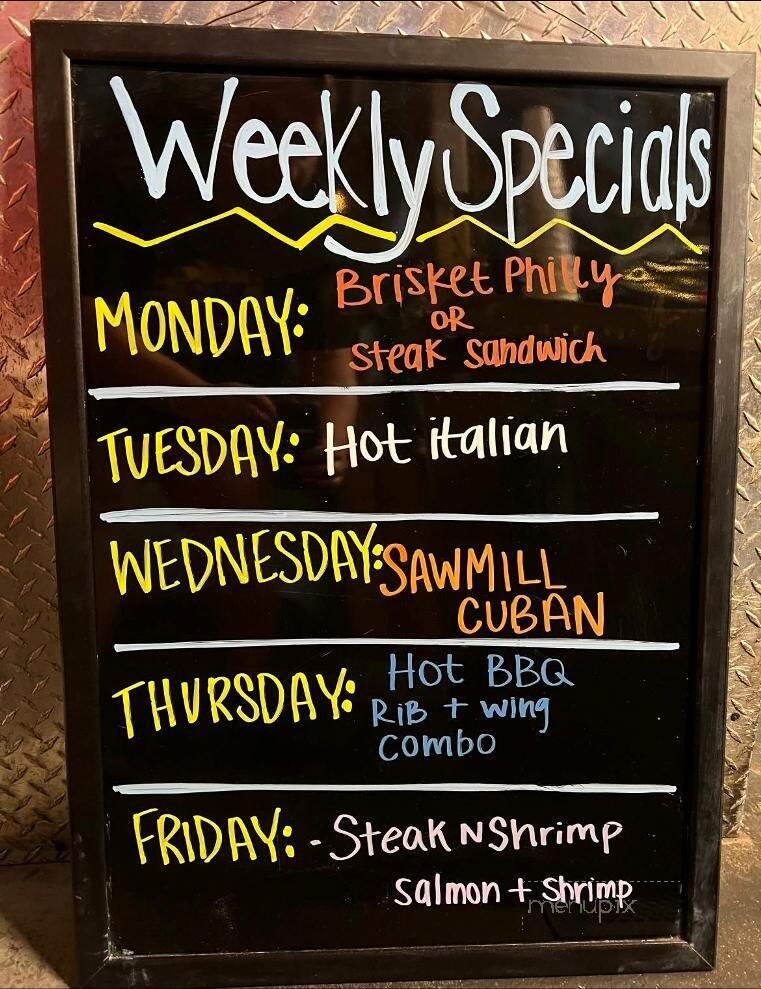 Weekly Specials
MONDAY: Brisket Philly
OR
Steak Sandwich
TUESDAY: Hot italian
WEDNESDAY: SAWMILL
CUBAN
THURSDAY: Hot BBQ
RiB + wing
Combo
FRIDAY: - Steak N Shrimp
Salmon + Shrimp
menupix